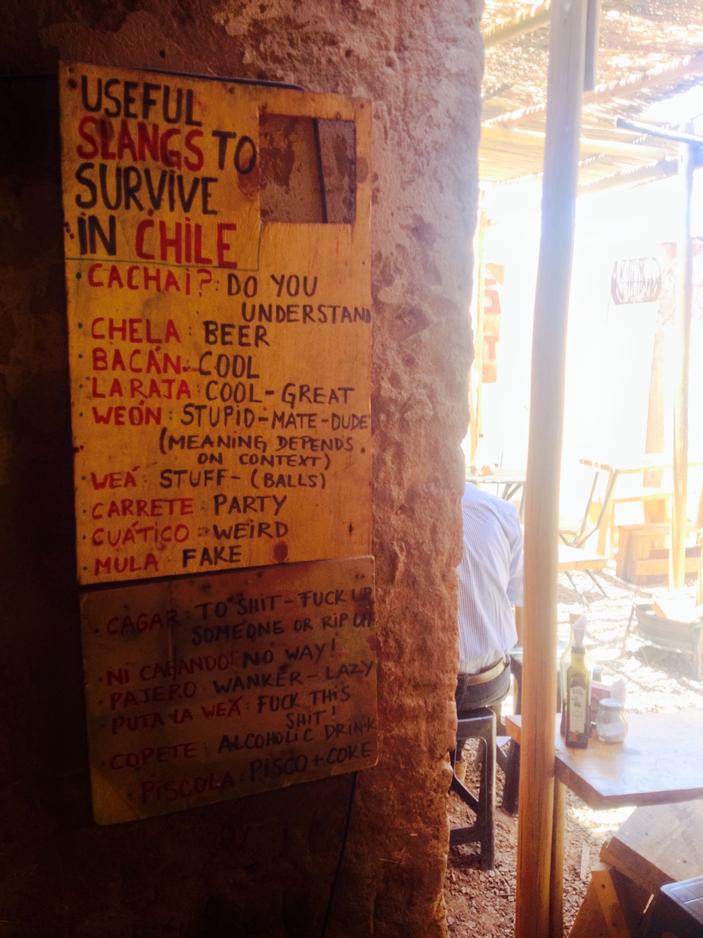 USEFUL
SLANGS TO
SURVIVE
IN CHILE
· CACHAI? : DO YOU
UNDERSTAND
· CHELA : BEER
· BACÁN : COOL
· LA RAJA : COOL - GREAT
· WEÓN : STUPID - MATE - DUDE
(MEANING DEPENDS
ON CONTEXT)
· WEÁ : STUFF - (BALLS)
· CARRETE : PARTY
· CUÁTICO : WEIRD
· MULA : FAKE
· CAGAR : TO SHIT - FUCK UP
SOMEONE OR RIP OFF
· NI CAGANDO! NO WAY!
· PAJERO : WANKER - LAZY
· PUTA LA WEÁ : FUCK THIS
SHIT!
· COPETE : ALCOHOLIC DRINK
· PISCOLA : PISCO + COKE